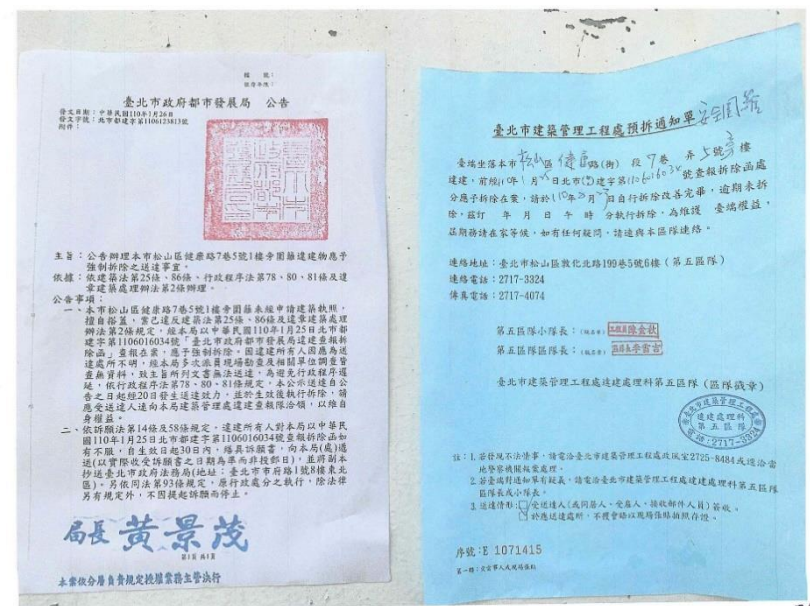 檔　號：
保存年限：
臺北市政府都市發展局　公告
發文日期：中華民國110年1月26日
發文字號：北市都建字第1106123813號
附件：
主旨：公告辦理本市松山區健康路7巷5號1樓旁圍籬違建物應予
強制拆除之送達事宜。
依據：依建築法第25條、86條、行政程序法第78、80、81條及違
章建築處理辦法第2條辦理。
公告事項：
一、本市松山區健康路7巷5號1樓旁圍籬未經申請建築執照，
擅自搭蓋，業已違反建築法第25條、86條及違章建築處理
辦法第2條規定，經本局以中華民國110年1月25日北市都
建字第1106016034號「臺北市政府都市發展局違建查報拆
除函」查報在案，應予強制拆除，因違建所有人因應為送
達處所不明，經本局多次派員現場勘查及相關單位調查皆
查無資料，致主旨所列文書無法送達，為避免行政程序遲
延，依行政程序法第78、80、81條規定，本公示送達自公
告之日起經20日發生送達效力，並於生效後執行拆除，請
應受送達人逕向本局建築管理處違建查報隊洽領，以維自
身權益。
二、依訴願法第14條及58條規定，違建所有人對本局以中華民
國110年1月25日北市都建字第1106016034號查報拆除函如
有不服，自生效日起30日內，繕具訴願書，向本局(處)遞
送(以實際收受訴願書之日期為準而非投郵日)，並將副本
抄送臺北市政府法務局(地址：臺北市市府路1號8樓東北
區)。另依同法第93條規定，原行政處分之執行，除法律
另有規定外，不因提起訴願而停止。
局長 黃景茂
第1頁 共1頁
本案依分層負責規定授權業務主管決行
臺北市建築管理工程處預拆通知單
臺端坐落本市松山區健康路(街)　段7巷　弄5號旁
違建，前經110年1月25日北市都建字第1106016034號查報拆除函處
分應予拆除在案，請於110年 月 日自行拆除改善完畢，逾期未拆
除，茲訂　年　月　日　午　時　分執行拆除，為維護　臺端權益，
屆期務請在家等候，如有任何疑問，請逕與本區隊連絡。
連絡地址：臺北市松山區敦化北路199巷5號6樓（第五區隊）
連絡電話：2717-3324
傳真電話：2717-4074
第五區隊小隊長：（職名章）
第五區隊區隊長：（職名章）
臺北市建築管理工程處違建處理科第五區隊（區隊戳章）
臺北市建築管理工程處
違建處理科
第五區隊
電話:2717-3324
註：1.若發現不法情事，請電洽臺北市建築管理工程處政風室2725-8484或逕洽當
地警察機關報案處理。
2.若臺端對通知單有疑義，請電洽臺北市建築管理工程處違建處理科第五區隊
區隊長或小隊長。
3.送達情形：□受送達人(或同居人、受雇人、接收郵件人員)簽收。
於應送達處所，不獲會晤以現場張貼拍照存證。
序號:E 1071415